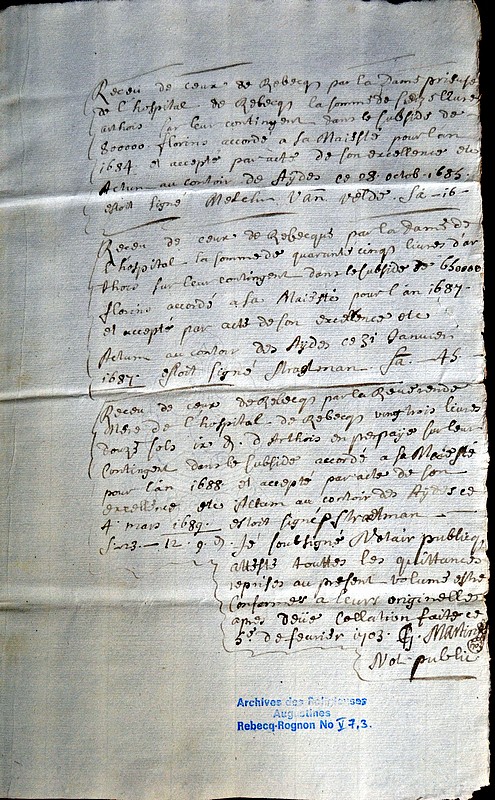 Receu de ceux de Rebecq par la Dame prieuse
de l'hospital de Rebecq la somme de seize livres
arthois sur leur contingent dans le subside de
800000 florins accordé a sa Maiesté pour l'an
1684 et accepté par acte de son excellence etc
Actum au contoir de Aydes ce 28 octob. 1685.
estoit signé Melch. Van Velde. Sa -16-
Receu de ceux de Rebecque par la Dame de
l'hospital la somme de quarante cinq livres d'ar
thois sur leur contingent dans le subside de 660000
florins accordé a sa Maiesté pour l'an 1687
et accepté par acte de son excellence etc
Actum au contoir des Aydes ce 31 Janvier
1687 estoit signé Straetman Sa. - 45 -
Receu de ceux de Rebecq par la Reverende
Mere de l'hospital de Rebecq vingt trois livres
douze sols ix d. d'Arthois en prepaye sur leur
Contingent dans le subside accordé a sa Maiesté
pour l'an 1688 et accepté par acte de son
excellence etc Actum au contoir des Aydes ce
4 mars 1689 estoit signé Straetman
S. 23 - 12. 9. d. Je soubsigné Notair publicq
atteste touttes les quittances
reprises au present volume estre
Conformes a leurs originelles
apres deüe Collation faite ce
5e de febvrier 1703. Martin
Not. public
Archives des Religieuses
Augustines
Rebecq-Rognon No V 7,3.